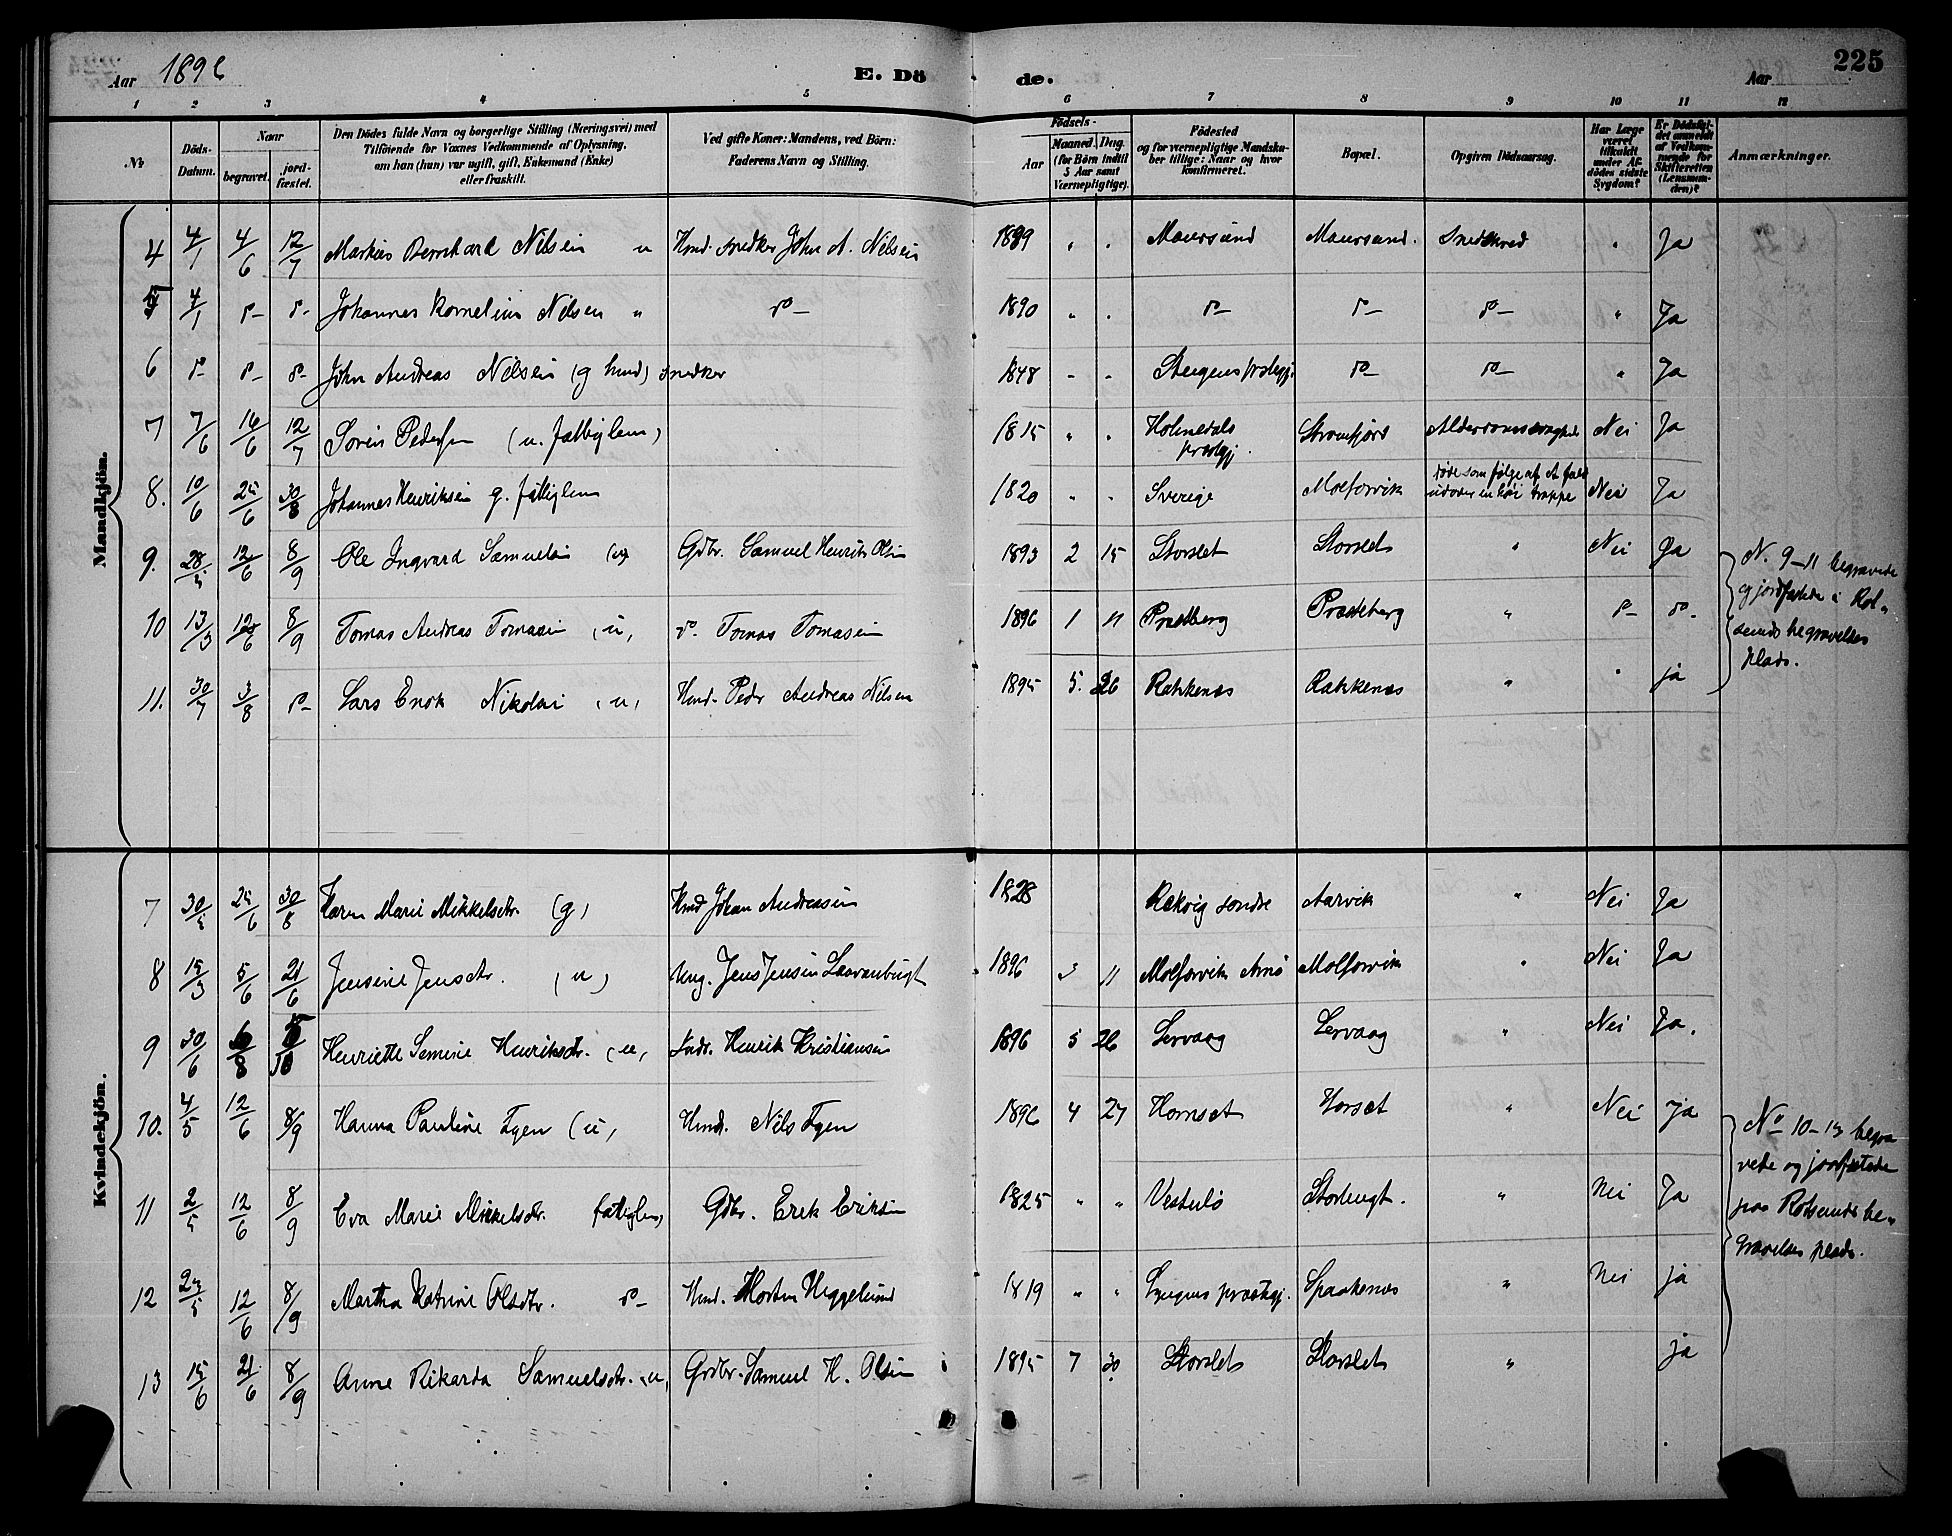 Aar 1896
E. Döde.
Aar
225
1 2 3 4 5 6 7 8 9 10 11 12
No
Döds-Datum.
Naar
begravet.
jordfæstet.
Den Dödes fulde Navn og borgerlige Stilling (Næringsvei) med
Tilföiende for Voxnes Vedkommende af Oplysning,
om han (hun) var ugift, gift, Enkemand (Enke)
eller fraskilt.
Ved gifte Koner: Mandens, ved Börn:
Faderens Navn og Stilling.
Födsels-
Aar
Maaned Dag
(for Börn indtil
5 Aar samt
Værnepligtige).
Födested
og for værnepligtige Mandskaber tillige: Naar og hvor
konfirmeret.
Bopæl.
Opgiven Dödsaarsag.
Har Læge
været
tilkaldt
under Afdödes sidste
Sygdom?
Er Dödsfaldet anmeldt
af Vedkommende for
Skifteretten
(Lensmanden)?
Anmærkninger.
Mandkjön.
4 4/1 4/6 12/7 Markus Bernhard Nilsen u Hmd. snedker John A. Nilsen 1889 " " Maursund Maursund. Sneskred " Ja
5 4/1 do do Johannes Kornelius Nilsen " do 1890 " " do do do " Ja
6 do do do John Andreas Nilsen (g hmd) snedker 1848 " " do do " Ja
7 7/6 16/6 12/7 Søren Pedersen (u. fattiglem) 1815 " " Holmedals præstgj. Straumfjord Alderdomssvaghed Nei Ja
8. 10/6 25/6 30/8 Johannes Henriksen g. fattiglem 1820 " " Sverige Molforvik døde som følge af et fald udover en høi trappe Nei Ja
9. 28/5 12/6 8/9 Ole Ingvard Samuelsen (u) Gdbr. Samuel Henrik Olsen 1893 2 15 Storslet Storslet " Nei Ja
10 13/3 12/6 8/9 Tomas Andreas Tomasen (u) do. Tomas Tomasen 1896 1 11 Præstberg Præstberg " do do
11. 30/7 3/8 do Lars Enok Nikolai (u) Hmd. Peder Andreas Nilsen 1895 5. 26 Rakkenæs Rakkenæs " " ja
N. 9-11 begravede
og jordfæstede i Rot-
sunds begravelses
plads.
Kvindekjön.
7 30/5 25/6 30/8 Karen Marie Mikkelsdtr. (g) Hmd Johan Andreasen 1828 Rekvig søndre Aarvik " Nei Ja
8 15/3 5/6 21/6 Jensine Jensdtr. (u) Ung. Jens Jensen 1896 3 11 Molforvik Arnø Molforvik " Nei Ja
9 30/6 6/8 Henriette Semine Henriksdtr. (u) Indr. Henrik Kristiansen 1896 5 26 Lervaag Lervaag " Nei Ja.
10. 4/5 12/6 8/9 Hanna Pauline Tyen (u) Hmd. Nils Tyen 1896 4 27 Homset Horset " Nei ja
11 2/5 12/6 8/9 Eva Marie Mikkelsdtr. fattiglem Gdbr. Erik Eriksen 1825 " " Vesterbø Storbugt. " Nei Ja
12 12/6 8/9 Martha Katrine Olsdtr. do Hmd. Morten Heggelund 1819 " " Lyngens præstgj. Spaakenæs " Nei ja
13 15/6 21/6 8/9 Anne Rikarda Samuelsdtr. u, Grdbr. Samuel H. Olsen 1895 7 30 Storslet Storslet " ja
No 10-13 begra
vede og jordfæstede
paa Rotsunds be-
gravelses plads.